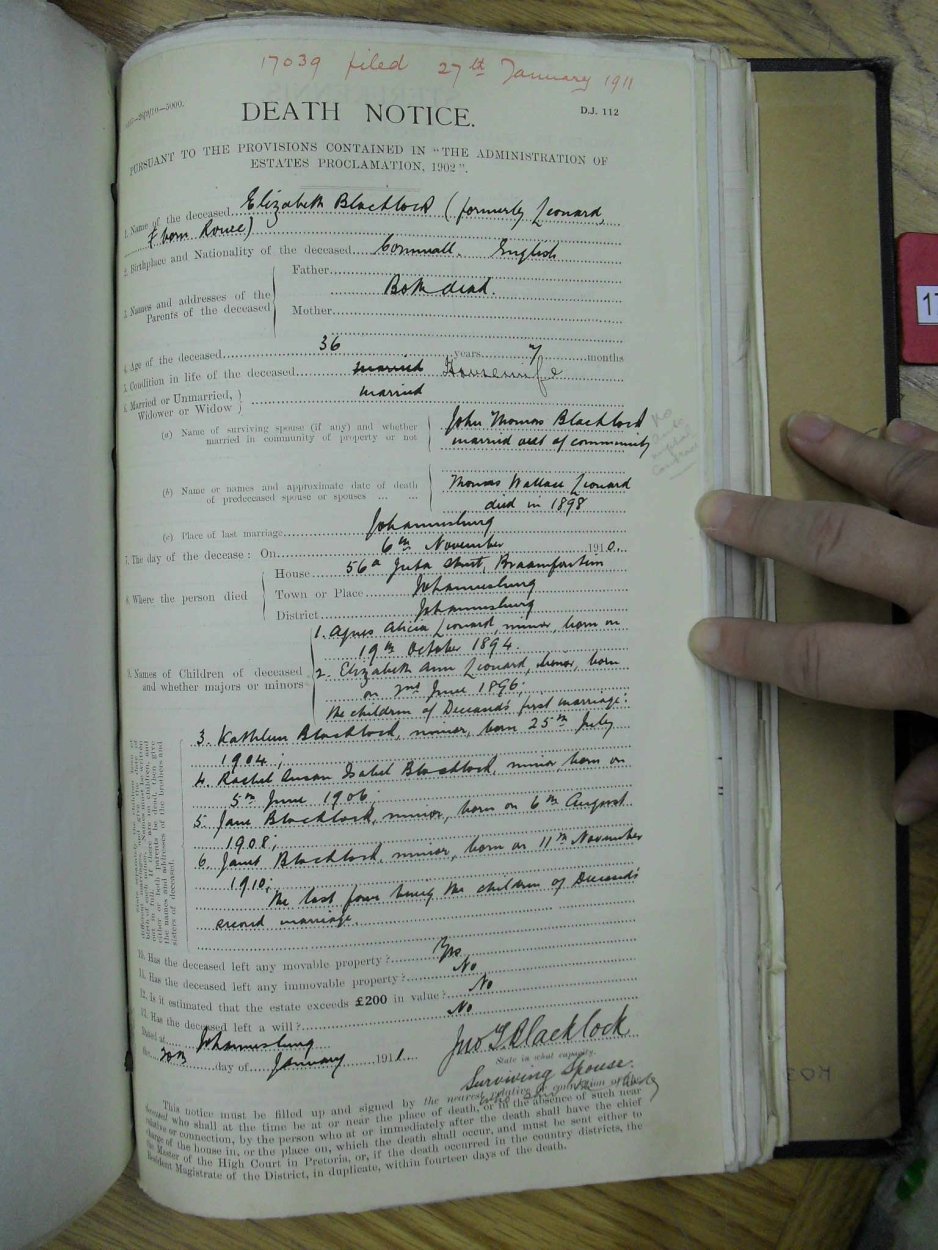 17039 filed 27th January 1911
DEATH NOTICE.
D.J. 112
PURSUANT TO THE PROVISIONS CONTAINED IN "THE ADMINISTRATION OF
ESTATES PROCLAMATION, 1902".
1. Name of the deceased Elizabeth Blacklock (formerly Leonard,
& born Rouse)
2. Birthplace and Nationality of the deceased Cornwall. English
3. Names and addresses of the Parents of the deceased
Father
Both dead.
Mother
4. Age of the deceased 36 years 7 months
5. Condition in life of the deceased married Housewife
6. Married or Unmarried, Widower or Widow married
(a) Name of surviving spouse (if any) and whether married in community of property or not
John Thomas Blacklock
married out of community
(b) Name or names and approximate date of death of predeceased spouse or spouses ... ...
Thomas Wallace Leonard
died in 1898
(c) Place of last marriage Johannesburg
7. The day of the decease: On 6th November 1910
8. Where the person died
House 56a Juta Street, Braamfontein
Town or Place Johannesburg
District Johannesburg
9. Names of Children of deceased and whether majors or minors
1. Agnes Alicia Leonard, minor, born on
19th October 1894.
2. Elizabeth Ann Leonard, minor, born
on 2nd June 1896;
the children of Deceased's first marriage:
3. Kathleen Blacklock, minor, born 25th July
1904;
4. Rachel Susan Isabel Blacklock, minor, born on
5th June 1906;
5. Jane Blacklock, minor, born on 6th August
1908;
6. Janet Blacklock, minor, born on 11th November
1910;
the last four being the children of Deceased's
second marriage.
either or both parents be dead, then give
the names and addresses of the brothers and
sisters of deceased.
10. Has the deceased left any movable property? Yes
11. Has the deceased left any immovable property? No
12. Is it estimated that the estate exceeds £200 in value? No
13. Has the deceased left a will? No
Dated at Johannesburg
the 20th day of January 1911
Jno T. Blacklock
State in what capacity.
Surviving Spouse.
This notice must be filled up and signed by the nearest relative or connection of the
deceased who shall at the time be at or near the place of death, or in the absence of such near
relative or connection, by the person who at or immediately after the death shall have the chief
charge of the house in, or the place on, which the death shall occur, and must be sent either to
the Master of the High Court in Pretoria, or, if the death occurred in the country districts, the
Resident Magistrate of the District, in duplicate, within fourteen days of the death.
17